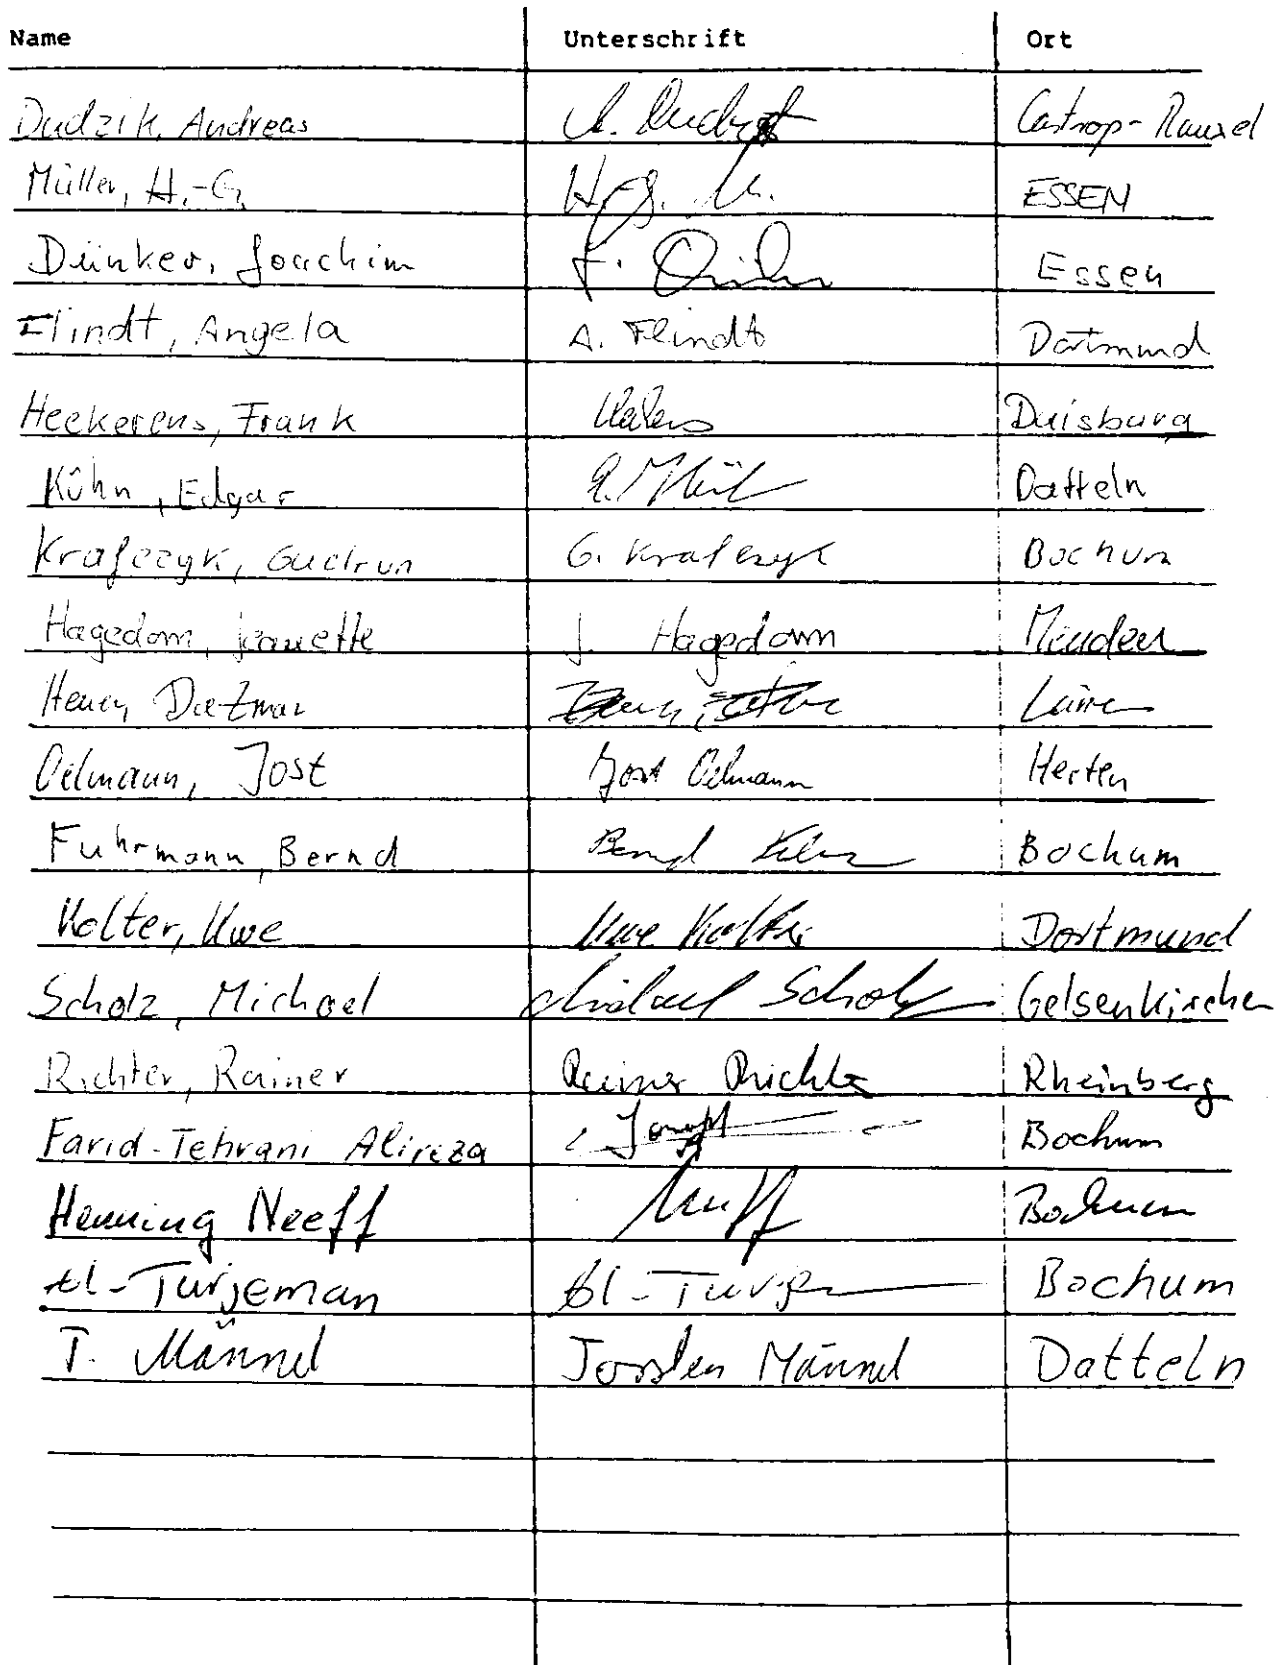 Name Unterschrift Ort
Dudzik, Andreas A. Castrop-Rauxel
Müller, H.-G. H.-G. M. ESSEN
Dünker, Joachim J. Essen
Flindt, Angela A. Flindt Dortmund
Heekerens, Frank Duisburg
Kühn, Edgar Datteln
Krafczyk, Gudrun G. Krafczyk Bochum
Hagedorn, Jeanette J. Hagedorn Menden
Henry Dietmar Lünen
Oelmann, Jost Jost Oelmann Herten
Fuhrmann, Bernd Bernd Bochum
Kolter, Uwe Uwe Kolter Dortmund
Scholz, Michael Michael Scholz Gelsenkirchen
Richter, Rainer Rainer Richter Rheinberg
Farid-Tehrani Alireza Bochum
Henning Neeff Neeff Bochum
El-Turjeman El-Turje Bochum
T. Männel Torsten Männel Datteln